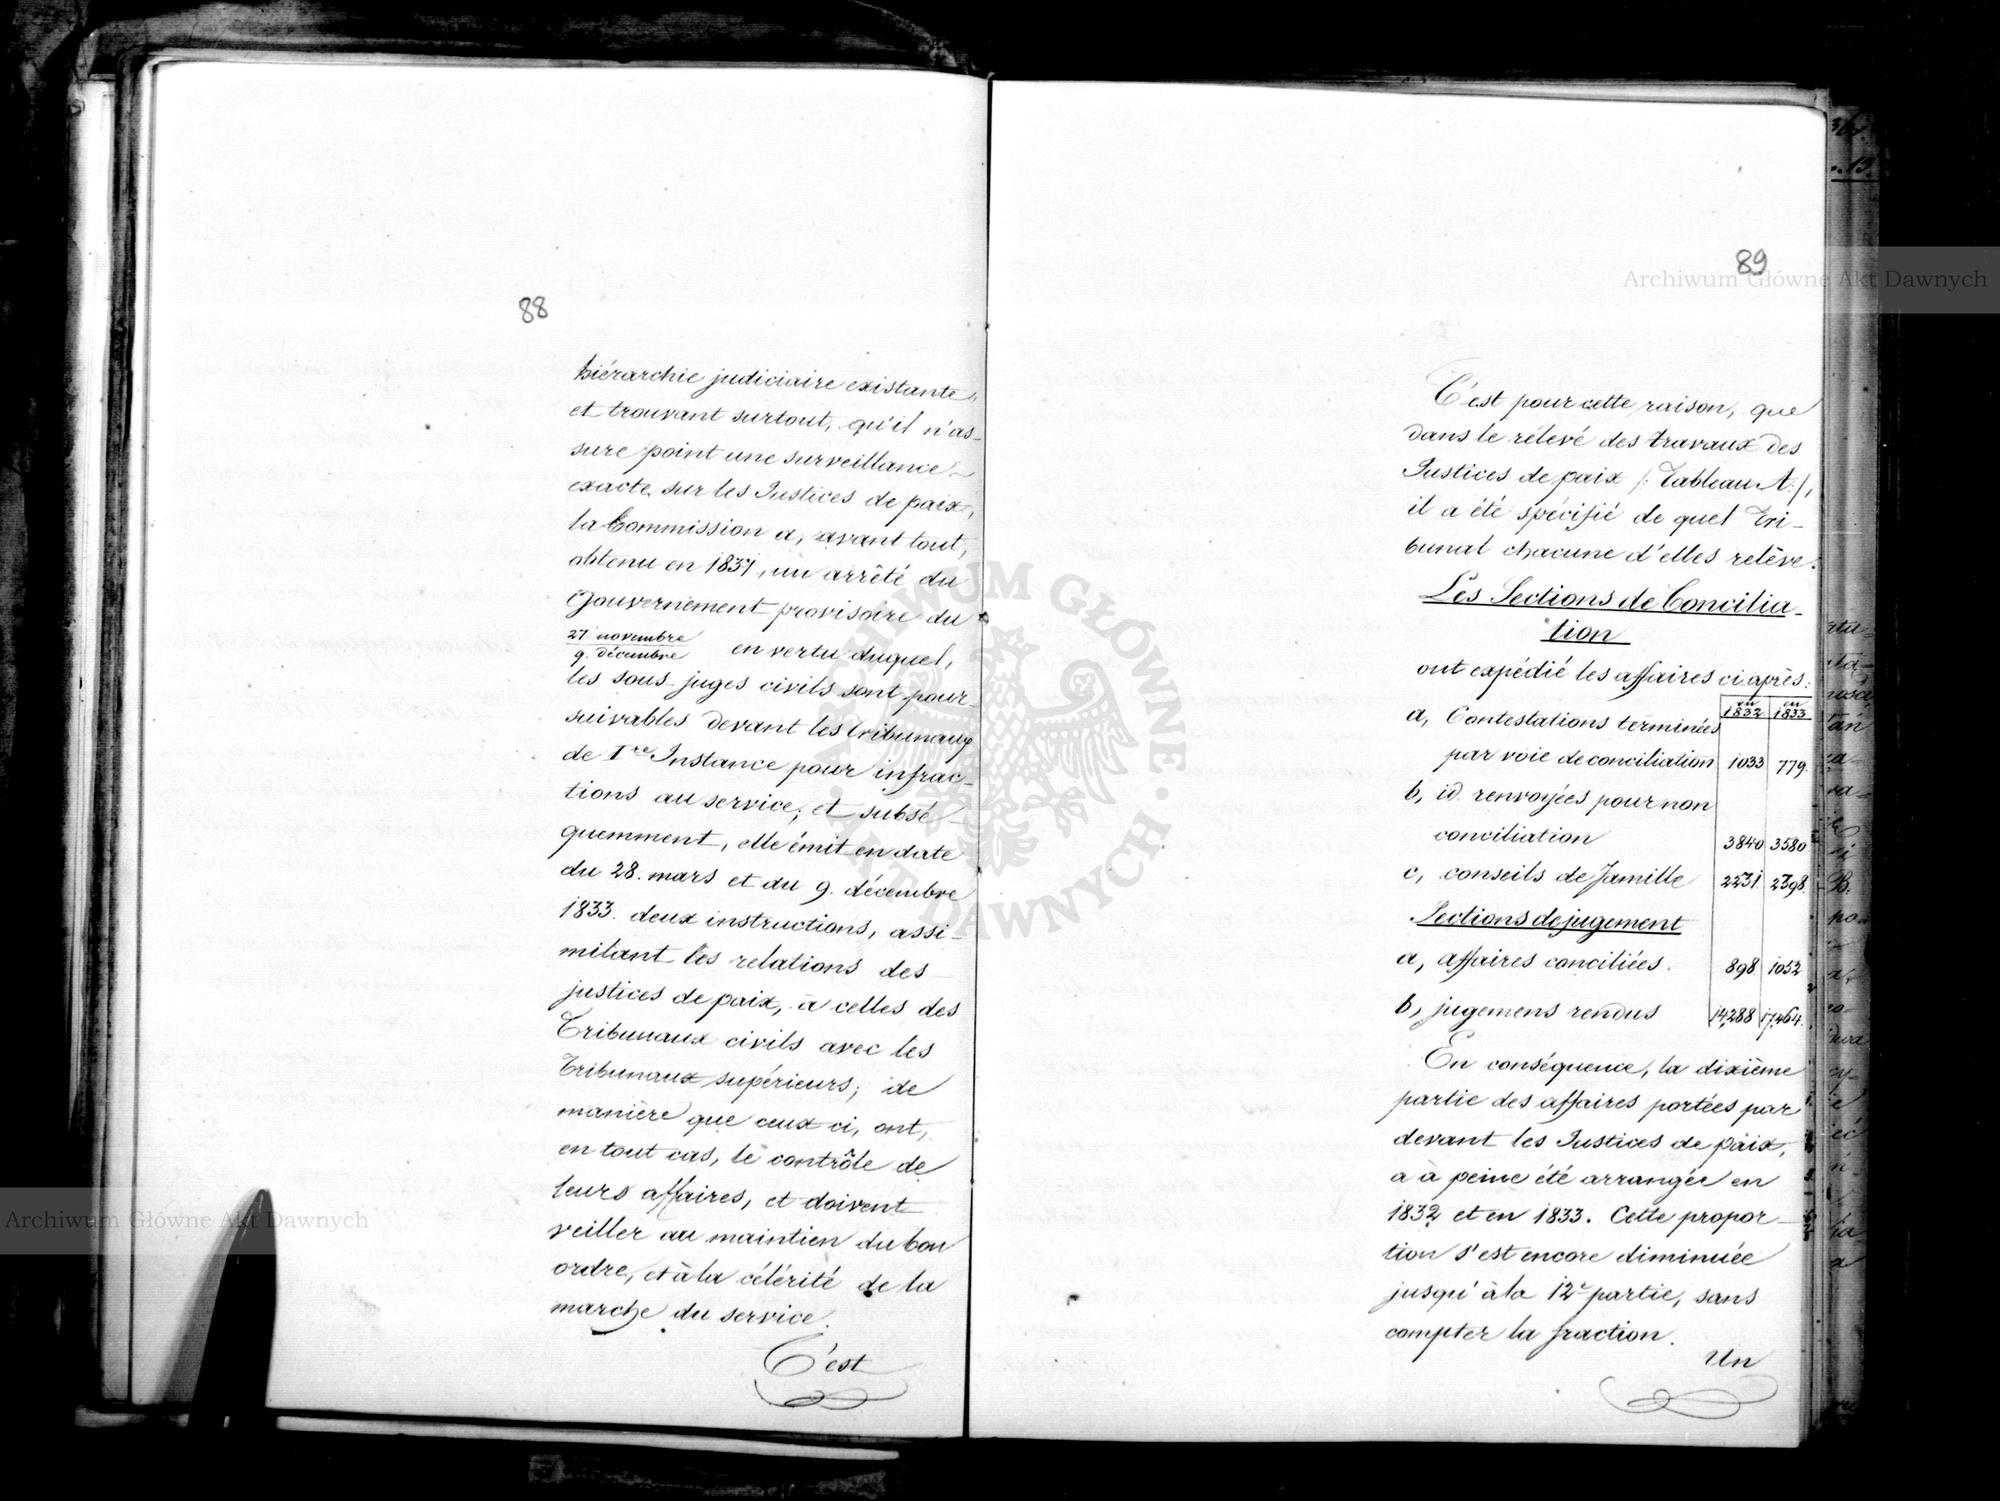 88
hiérarchie judiciaire existante,
et trouvant surtout, qu'il n'as-
sure point une surveillance
exacte sur les Justices de paix,
la Commission a, avant tout,
obtenu en 1831, un arrêté du
Gouvernement provisoire du
27 novembre
9. décembre en vertu duquel,
les sous-juges civils sont pour-
suivables devant les tribunaux
de Ire Instance pour infrac-
tions au service, et subsé-
quemment, elle émit en date
du 28. mars et du 9. décembre
1833. deux instructions, assi-
milant les relations des
justices de paix, à celles des
Tribunaux civils avec les
Tribunaux supérieurs; de
manière que ceux ci, ont,
en tout cas, le contrôle de
leurs affaires, et doivent
veiller au maintien du bon
ordre, et à la célérité de la
marche du service.
C'est
89
C'est pour cette raison, que
dans le rélevé des travaux des
Justices de paix /: Tableau A:/,
il a été spécifié de quel Tri-
bunal chacune d'elles relève.
Les Sections de Concilia-
tion
ont expédié les affaires ci après:
en 1832 en 1833
a, Contestations terminées
par voie de conciliation 1033 779.
b, id. renvoyées pour non
conciliation 3840 3580
c, conseils de famille 2231 2398.
Sections de jugement
a, affaires conciliées. 898 1052
b, jugemens rendus 14,288 17,464.
En conséquence, la dixième
partie des affaires portées par
devant les Justices de paix,
a à peine été arrangée en
1832 et en 1833. Cette propor-
tion s'est encore diminuée
jusqu'à la 12e partie, sans
compter la fraction.
Un
Archiwum Główne Akt Dawnych
Archiwum Główne Akt Dawnych
ARCHIWUM GŁÓWNE AKT DAWNYCH